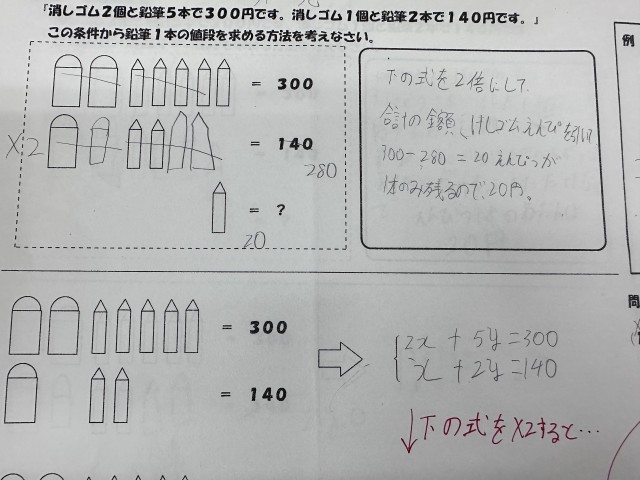 「消しゴム2個と鉛筆5本で300円です。消しゴム1個と鉛筆2本で140円です。」
この条件から鉛筆1本の値段を求める方法を考えなさい。
例
= 300
×2 = 140
280
= ?
20
下の式を2倍にして
合計の金額、けしゴムえんぴを引いて
300-280=20 えんぴつが
1本のみ残るので、20円。
= 300
= 140
2x + 5y = 300
x + 2y = 140
下の式を×2すると…
問